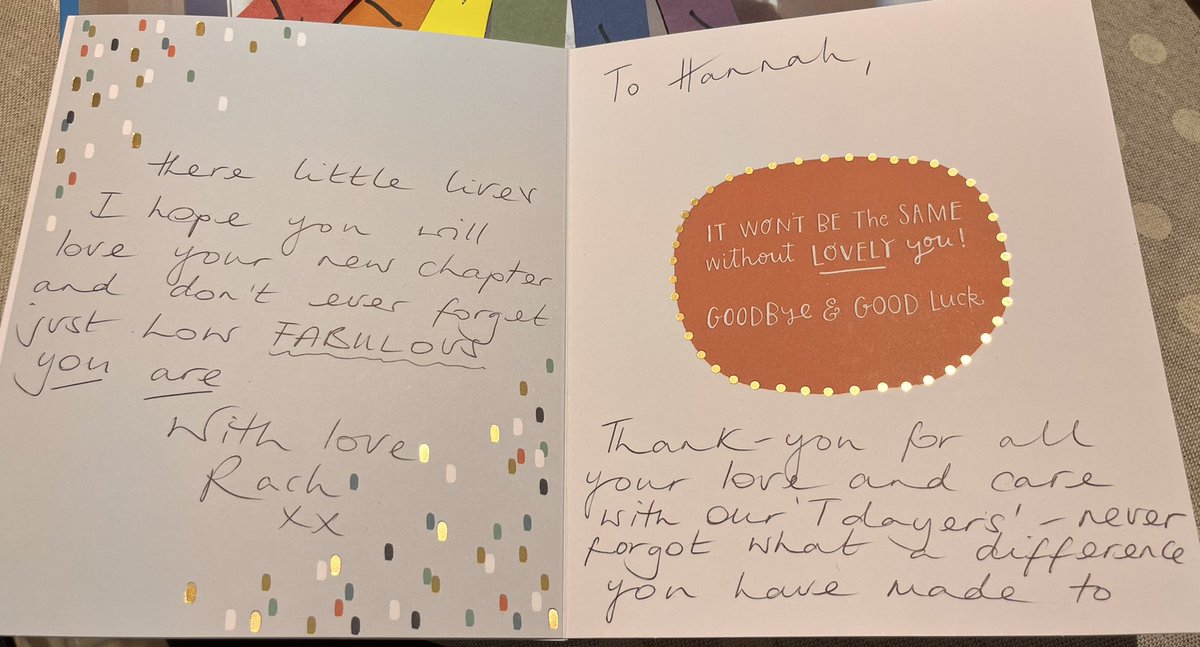 To Hannah,
IT WON'T BE The SAME
without LOVELY you!
GOODBye & GOOD Luck
Thank-you for all
your love and care
with our 'Tdayers' - never
forgot what a difference
you have made to
there little lives
I hope you will
love your new chapter
and don't ever forget
just how FABULOUS
you are
With love
Rach
xx